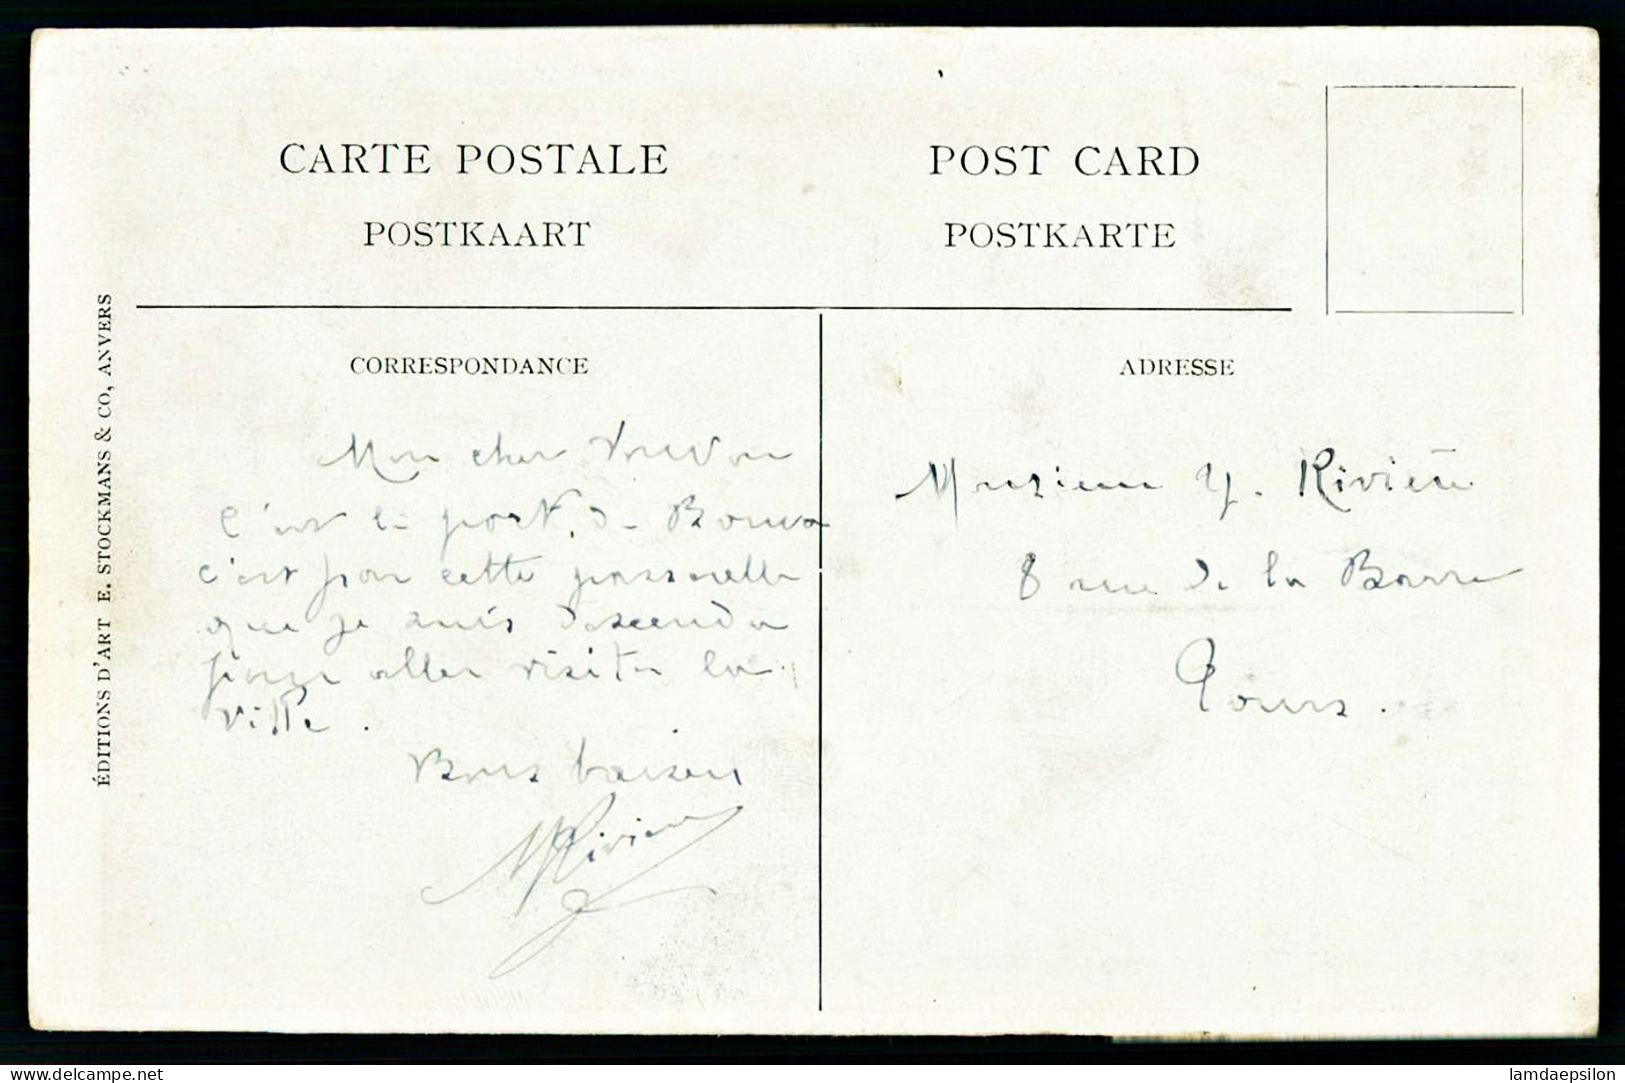 CARTE POSTALE
POSTKAART
POST CARD
POSTKARTE
ÉDITIONS D'ART E. STOCKMANS & CO, ANVERS
CORRESPONDANCE
Mon cher
c'est le port de Boma
c'est par cette passerelle
que je suis descendu
pour aller visiter la
ville.
Bons baisers
Rivière
ADRESSE
Monsieur Y. Rivière
8 rue de la Barre
Tours.
delcampe.net
lamdaepsilon